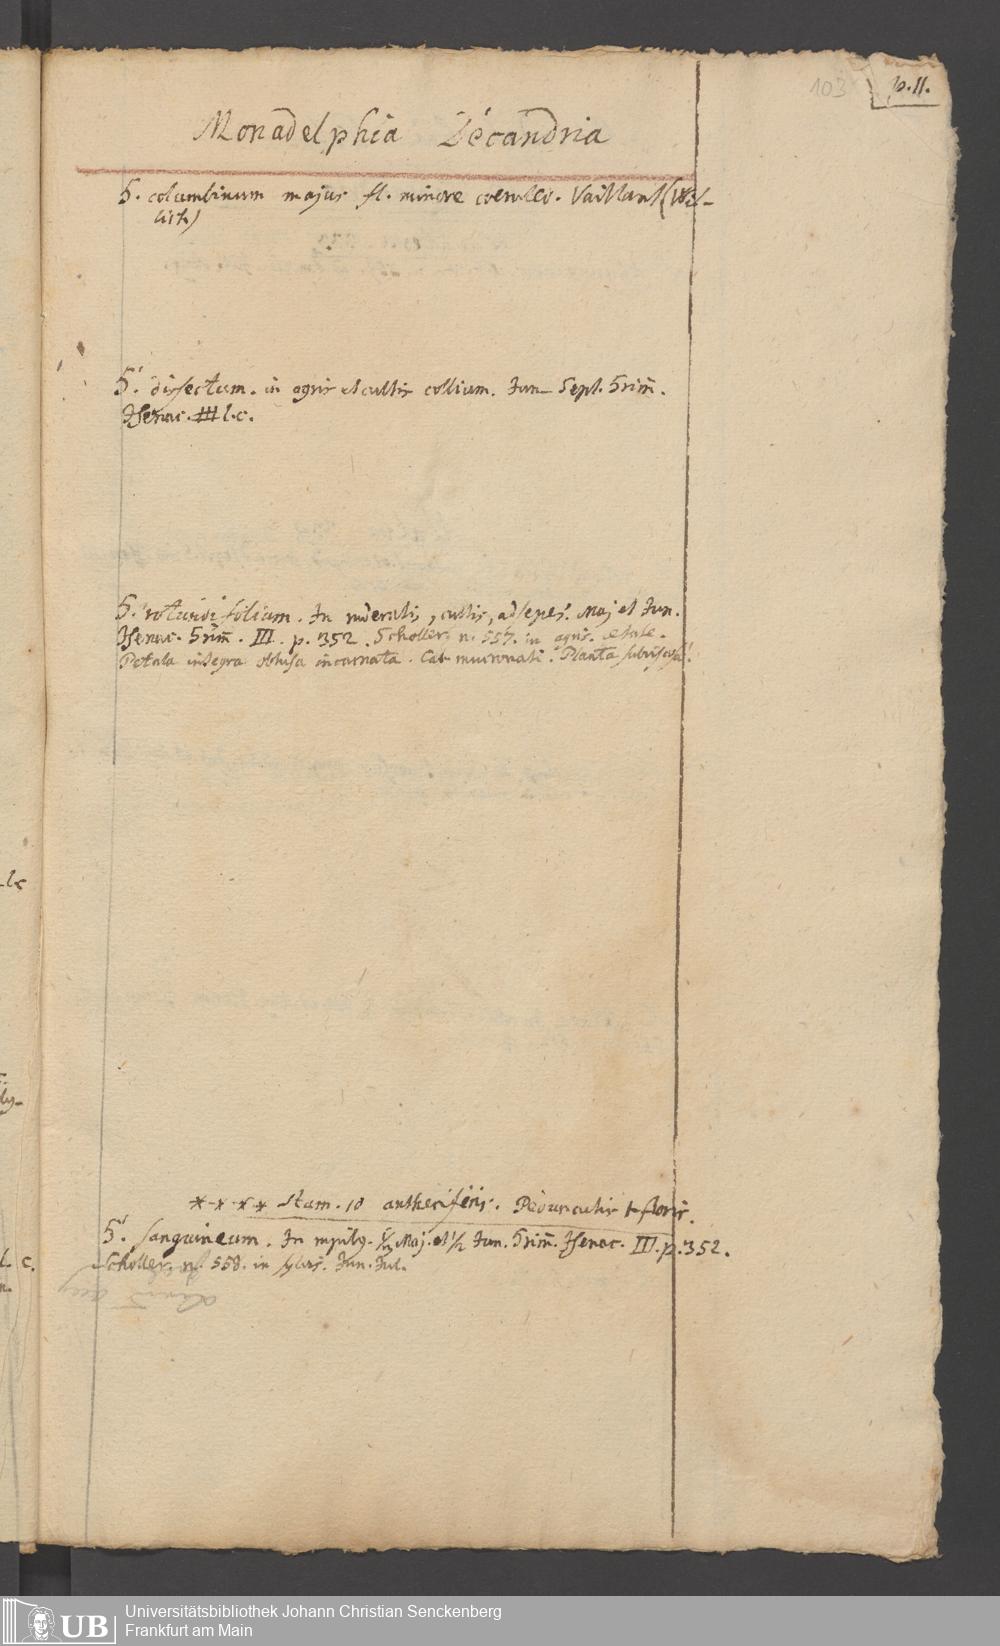 103
p. 11.
Monadelphia Decandria
G. columbinum majus fl. minore coeruleo. Vaillant (Wil-
lich)
G. dissectum. in agris et cultis collium. Jun - Sept. Grim̄.
Isenac. III l. c.
G. rotundifolium. In ruderatis, cultis, ad sepes. Maj et Jun.
Isenac. Grim̄. III. p. 352. Scholler. n. 557. in agris. aestate.
Petala integra obtusa incarnata. Cal. mucronati. Planta subviscosa.
* * * * Stam. 10 antheriferis. Pedunculis 1-floris.
G. sanguineum. In rupibus. 1/2 Maj. et 1/2 Jun. Grim̄. Isenac. III. p. 352.
Scholler. n. 558. in sylvis. Jun. Jul.
l. c.
n.
Universitätsbibliothek Johann Christian Senckenberg
Frankfurt am Main
UB